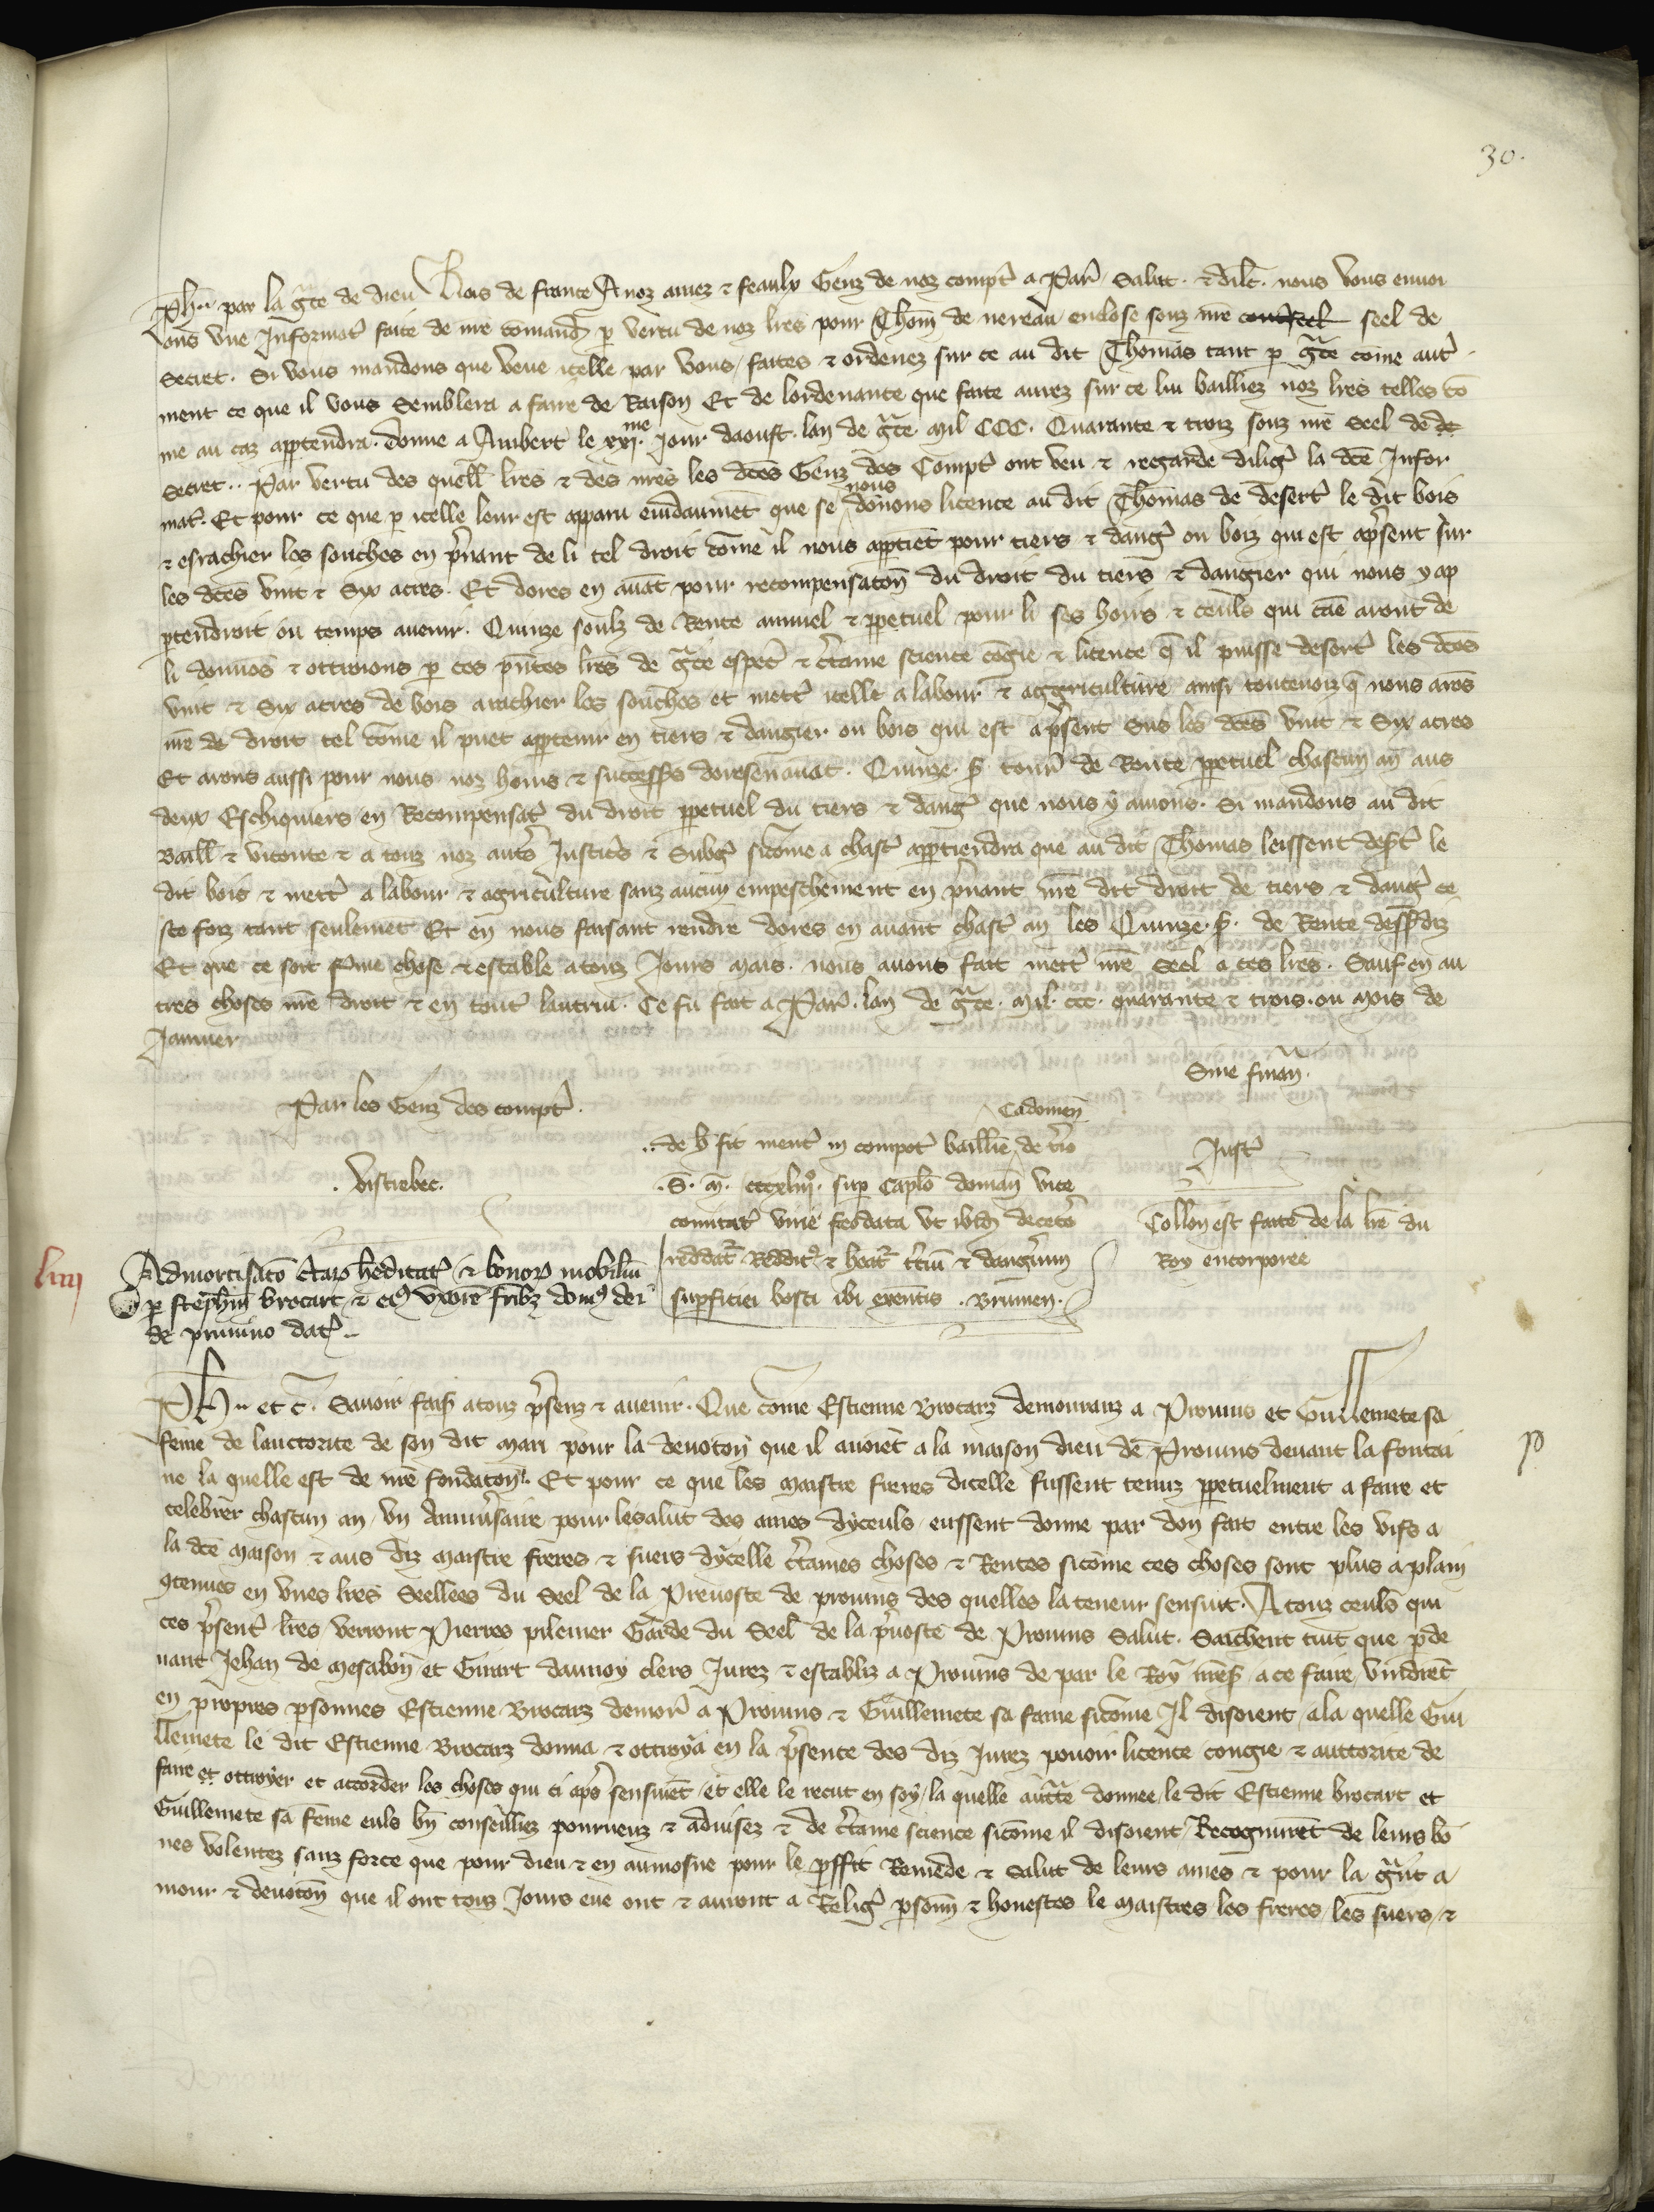 30.
Ph̃ par la gr̃ce de dieu Rois de france A noz amez ⁊ feaulx Genz de noz compt̃ a Par̃ Salut ⁊ dilc̃. nous vous enuoi
ons vne Informat̃ faite de nr̃e com̃and̃ p̱ vertu de noz lr̃es pour Thom̃ de nereau enclose souz nr̃e contreseel seel de
secret. Si vous mandons que veue icelle par vous / faites ⁊ ordenez sur ce au dit Thomas tant p̱ gr̃ce com̃e aut̃
ment ce que il vous Semblera a faire de Raison Et de lordenance que faite aurez sur ce lui bailliez noz lr̃es telles cõ
me au caz app̱tendra. donne a Aubert le xxj.me Jour daoust. lan de gr̃ce mil CCC. Quarante ⁊ troiz souz nr̃e Seel de de
secret.. Par vertu des quell̃ lr̃es ⁊ des nr̃es les dc̃es Genz des Compt̃ ont veu ⁊ regarde dilig̃ la dc̃e Infor
mat̃. Et pour ce que p̱ icelle leur est apparu euid̃aument que se nous donons licence au dit Thomas de desert̃ le dit bois
⁊ esrachier les souches en p̃nant de li tel droit com̃e il nous app̱tiẽt pour tiers ⁊ dang̃ ou boiz qui est ap̃sent sur
les dc̃es vint ⁊ Syx acres. Et dores en auãt pour recompensac̃on du droit du tiers ⁊ dangier qui nous y ap
p̱tendroit ou temps auenir. Quinze soulz de Rente annuel ⁊ p̱petuel pour li ses hoirs ⁊ ceuls qui cãe aront de
li donnos ⁊ ottroions p̱ ces p̃ntes lr̃es de gr̃ce esp̃ec̃ ⁊ c̃taine science cõgie ⁊ licence q̃ il puisse desert̃ les dc̃es
vint ⁊ Six acres de bois arachier les souches et mett̃ icelle a labour ⁊ aggriculture ainsi toutenoiz q̃ nous aros
nr̃e de droit tel com̃e il puet app̱tenir en tiers ⁊ dangier ou bois qui est ap̃sent Sus les dc̃es vint ⁊ Syx acres
Et arons aussi pour nous noz hoirs ⁊ success̃rs doresenauãt. Quinze. s̃. tourñ de Rente p̱petuel chascun añ aus
deux Eschiquiers en Recompensac̃ du droit p̱petuel du tiers ⁊ dang̃ que nous y auions. Si mandons au dit
Baill̃ ⁊ viconte ⁊ a touz noz aut̃s Justic̃s ⁊ Subg̃ sicom̃e a chasc̃ app̱tiendra que au dit Thomas leissent desert̃ le
dit bois ⁊ mett̃ a labour ⁊ agric̃ulture sanz aucun empeschement en p̃nant nr̃e dit droit de tiers ⁊ dang̃ ce
ste foiz tant seulemẽt Et en nous faisant rendre dores en auant chasc̃ an les Quinze. s̃. de Rente dess̃diz
Et que ce soit fer̃me chose ⁊ estable atouz Jours mais. nous auons fait mett̃ nr̃e Seel a ces lr̃es. Sauf en au
tres choses nr̃e droit ⁊ en tout̃ lautrui. Ce fu fait a Par̃. lan de gr̃ce. mil. ccc. quarante ⁊ trois. ou mois de
Januier
Sine finañ.
Par les Genz des compt̃.
. Vistrebec.
Cadomeñ
.. de h̃ fit ment̃ in compot̃ baillĩe de t̃io
.S̃. m̃. cccxliij̊. sup̱ Capl̃o domañ vice
comitat̃ virie feodata vt ibid̃ decet̃o
reddat̃ Reddit̃⁹ ⁊ heat̃ t̃ciũ ⁊ dang̃ium
sup̱ficiei bosci ibi exẽntis . Brumen.
Just̃
Coll̃on est faite de la lr̃e du
Roy encorporee
liiij
Admortisac̃o c̃tar̃ heditat̃ ⁊ bonor̃ mobiliũ
p̱ steph̃m brocart ⁊ ei⁹ vxorẽ fr̃ibz dom⁹ dei
de pruuino dat̃.
Ph̃ et c̃. Sauoir fais̃ atouz p̃senz ⁊ auenir. Que com̃e Estienne Brocarz demouranz a Prouins et Guillemete sa
fem̃e de lauctorite de son dit mari pour la deuoc̃on que il auoiẽt a la maison dieu de Prouins deuant la fontai
ne la quelle est de nr̃e fondac̃on. Et pour ce que les maistre freres dicelle fussent tenuz p̱petuelment a faire et
celebrer chascun an / vn Anniu̾saire pour lesalut des ames dyceuls / eussent donne par don fait entre les vifs a
la dc̃e maison ⁊ aus diz maistre freres ⁊ suers dycelle c̃taines choses ⁊ Rentes sicõme ces choses sont plus a plain
ꝯtenues en vnes lr̃es Seellees du Seel de la Preuoste de prouins des quelles la teneur sensuit. A touz ceuls qui
ces p̃sent̃ lr̃es verront Pierres pilemer Garde du Seel de la p̃uoste de Prouins Salut. Saichent tuit que p̱de
uant Jehan de mesabon̄ et Girart daunoy clers Jurez ⁊ establiz a Prouins de par le Roy nr̃es̃ / a ce faire / vindrẽt
en propres p̱sonnes Estienne Brocarz demor̃ a Prouins ⁊ Guillemete sa fame sicom̃e Il disoient / ala quelle Gui
llemete le dit Estienne Brocarz donna ⁊ ottroya en la p̃sence des diz Jurez pouoir licence congie ⁊ auctorite de
faire et ottroyer et accorder les choses qui ci ap̃s sensuiẽt / et elle le recut en soy / la quelle auct̃te donnee / le dit Estienne brocart et
Guillemete sa fem̃e euls bñ conseilliez pourueuz ⁊ aduisez ⁊ de c̃taine science sicom̃e il disoient / Recognurẽt de leurs bõ
nes volentez sanz force que pour dieu ⁊ en aumosne pour le p̱ffit Remede ⁊ Salut de leurs ames ⁊ pour la gr̃nt a
mour ⁊ deuoc̃on que il ont touz Jours eue ont ⁊ auront a Relig̃ p̱sonñ ⁊ honestes le maistres les freres / les suers / ⁊
p